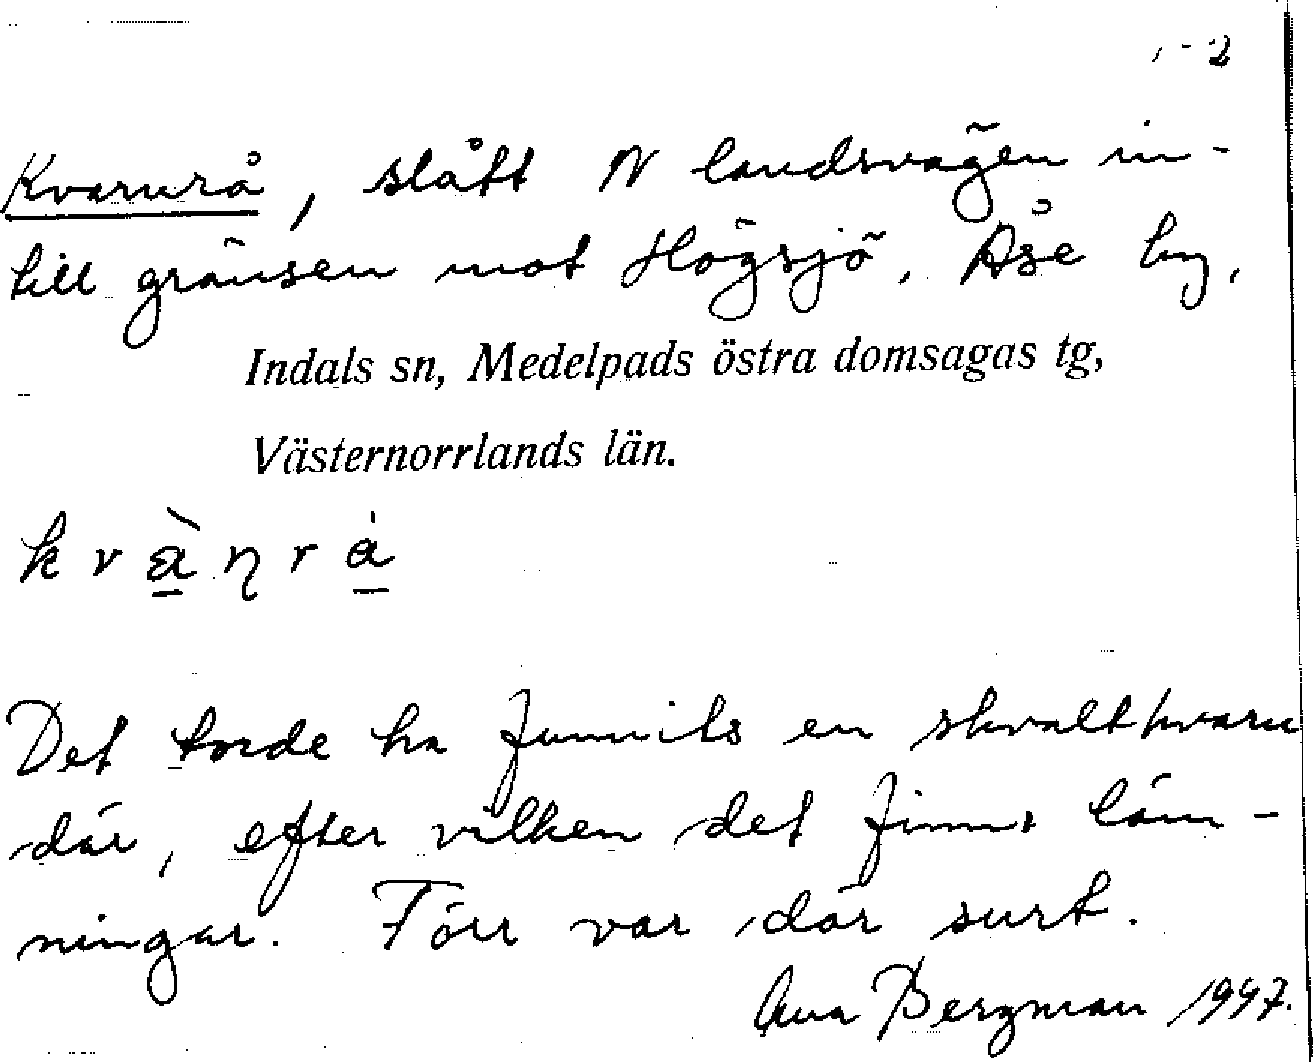 1-2
Kvarnrå, slått N landsvägen in-
till gränsen mot Högsjö. Åse by,
Indals sn, Medelpads östra domsagas tg,
Västernorrlands län.
k v à̱ ɳ r ȧ̱
Det torde ha funnits en skvaltkvarn
där, efter vilken det finns läm-
ningar. Förr var där surt.
Ana Bergman 1947.